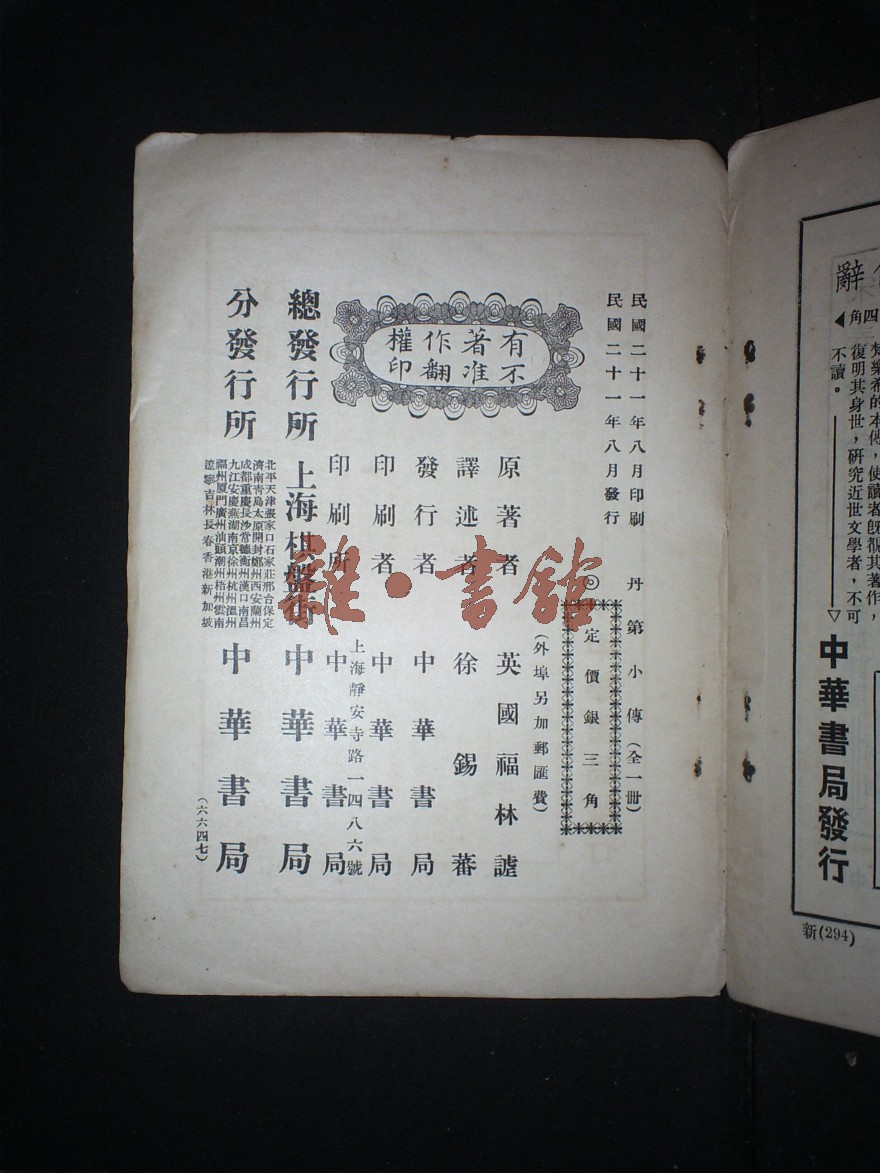 民國二十一年八月印刷
民國二十一年八月發行
丹第小傳(全一冊)
◎定價銀三角
(外埠另加郵匯費)
有著作權
不准翻印
原著者 英國福林謔
譯述者 徐錫蕃
發行者 中華書局
印刷者 中華書局
上海靜安寺路一四八六號
印刷所 中華書局
總發行所 上海棋盤街 中華書局
分發行所
北平天津張家口石家莊邢台保定
濟南青島太原開封鄭州西安蘭州
成都重慶長沙常德衡州漢口南昌
九江安慶蕪湖南京徐州杭州溫州
福州廈門廣州汕頭潮州梧州雲南
遼寧吉林長春香港新加坡
中華書局
(六六四七)
雜·書館
辭
四角
梵樂希的本傳,使讀者既視其著作,
復明其身世,研究近世文學者,不可
不讀。
中華書局發行
新(294)